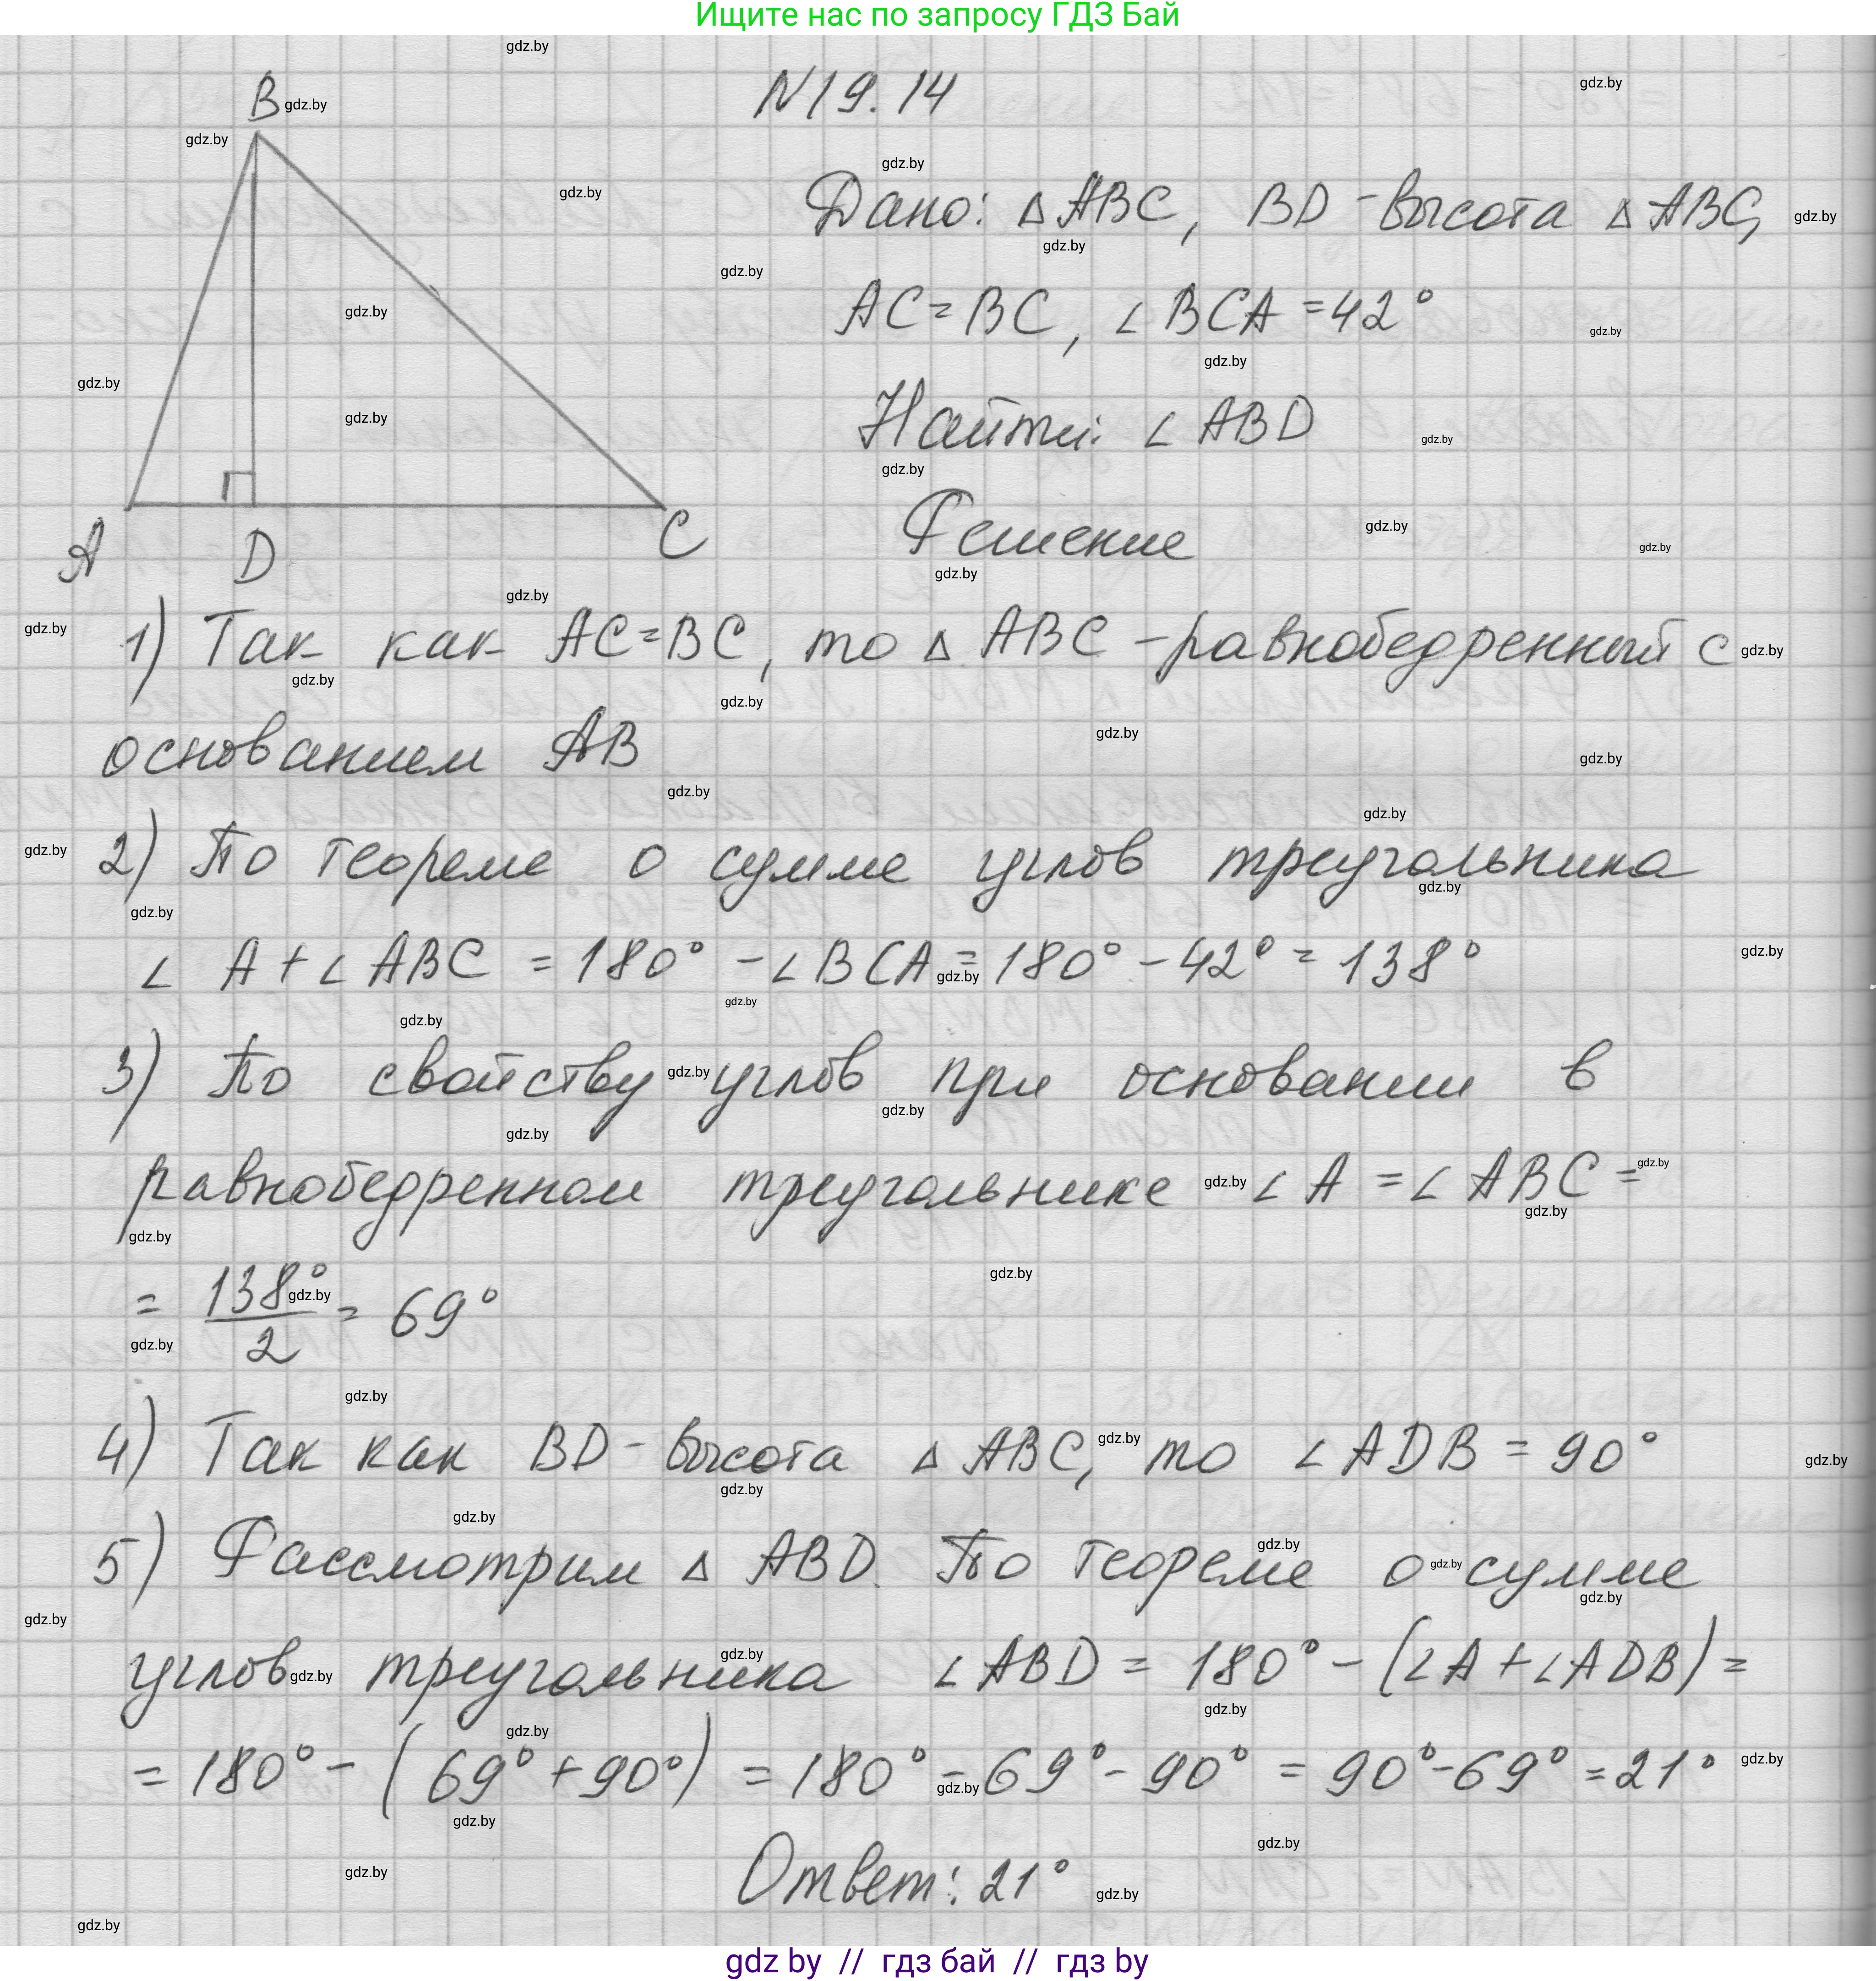 Ищите нас по запросу ГДЗ Бай
N19.14
Дано: △ABC, BD - высота △ABC,
AC = BC, ∠BCA = 42°
Найти: ∠ABD
B
A D C
Решение
1) Так как AC = BC, то △ABC - равнобедренный с
основанием AB
2) По теореме о сумме углов треугольника
∠A + ∠ABC = 180° - ∠BCA = 180° - 42° = 138°
3) По свойству углов при основании в
равнобедренном треугольнике ∠A = ∠ABC =
= 138°/2 = 69°
4) Так как BD - высота △ABC, то ∠ADB = 90°
5) Рассмотрим △ABD. По теореме о сумме
углов треугольника ∠ABD = 180° - (∠A + ∠ADB) =
= 180° - (69° + 90°) = 180° - 69° - 90° = 90° - 69° = 21°
Ответ: 21°
gdz by // гдз бай // гдз by